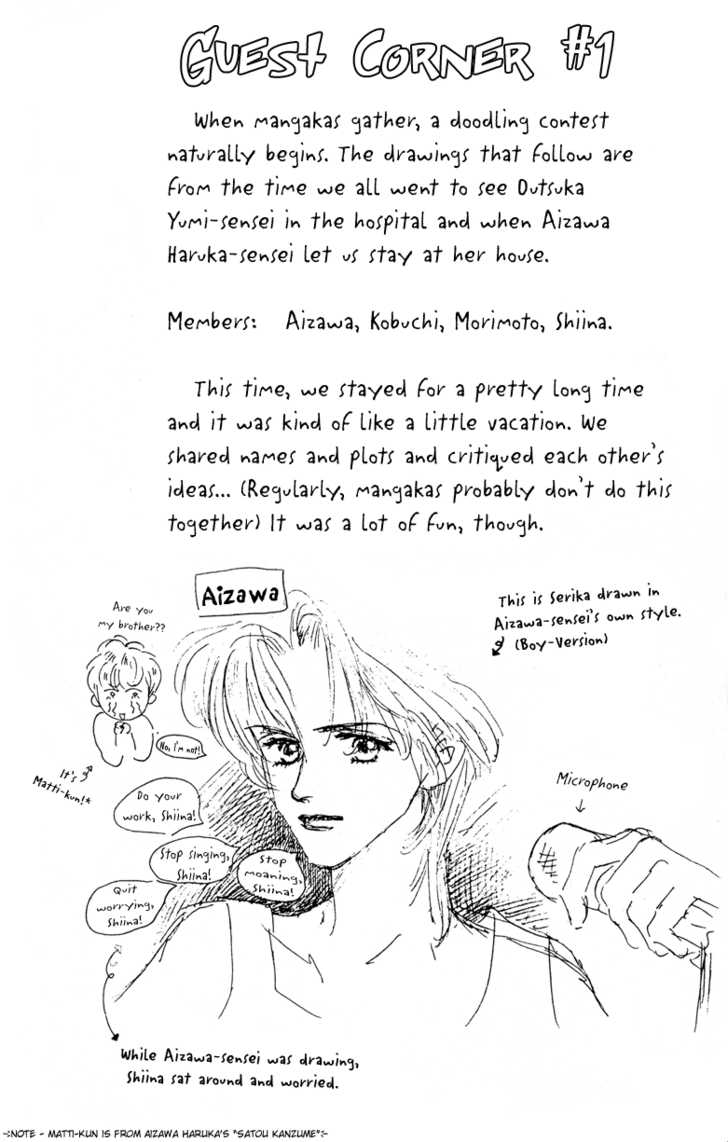 GUEST CORNER #1
When mangakas gather, a doodling contest
naturally begins. The drawings that follow are
from the time we all went to see Outsuka
Yumi-sensei in the hospital and when Aizawa
Haruka-sensei let us stay at her house.
Members: Aizawa, Kobuchi, Morimoto, Shiina.
This time, we stayed for a pretty long time
and it was kind of like a little vacation. We
shared names and plots and critiqued each other's
ideas... (Regularly, mangakas probably don't do this
together) It was a lot of fun, though.
Aizawa
Are you
my brother??
This is Serika drawn in
Aizawa-sensei's own style.
(Boy-Version)
No, I'm not!
It's
Matti-kun!*
Do your
work, Shiina!
Microphone
Stop singing,
Shiina!
Stop
moaning,
Shiina!
Quit
worrying,
Shiina!
While Aizawa-sensei was drawing,
Shiina sat around and worried.
-:NOTE - MATTI-KUN IS FROM AIZAWA HARUKA'S "SATOU KANZUME":-